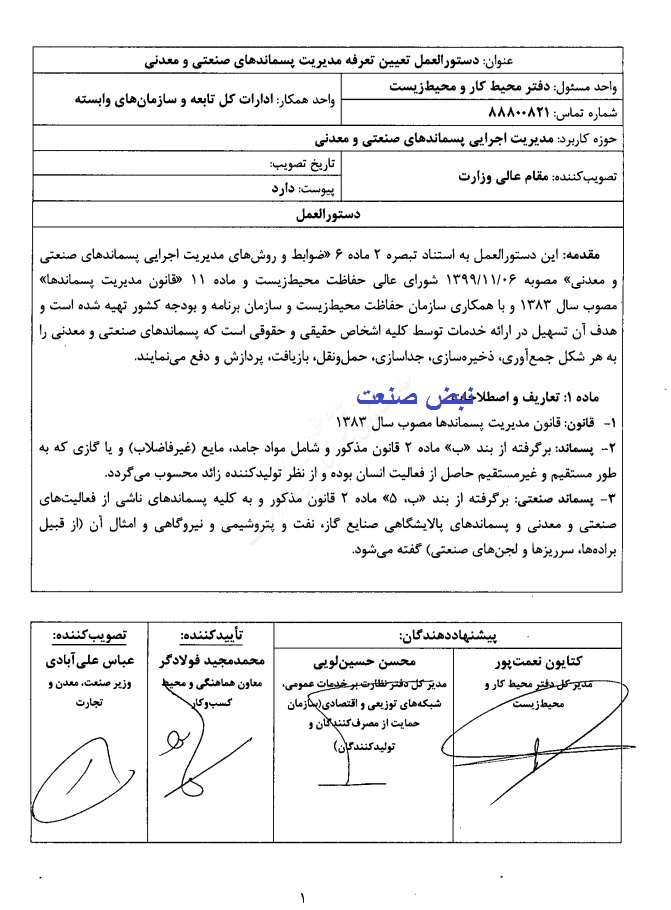 عنوان: دستورالعمل تعیین تعرفه مدیریت پسماندهای صنعتی و معدنی
واحد مسئول: دفتر محیط کار و محیط‌زیست
شماره تماس: ۸۸۸۰۰۸۲۱
واحد همکار: ادارات کل تابعه و سازمان‌های وابسته
حوزه کاربرد: مدیریت اجرایی پسماندهای صنعتی و معدنی
تصویب‌کننده: مقام عالی وزارت
تاریخ تصویب:
پیوست: دارد
دستورالعمل
مقدمه: این دستورالعمل به استناد تبصره ۲ ماده ۶ «ضوابط و روش‌های مدیریت اجرایی پسماندهای صنعتی
و معدنی» مصوبه ۱۳۹۹/۱۱/۰۶ شورای عالی حفاظت محیط‌زیست و ماده ۱۱ «قانون مدیریت پسماندها»
مصوب سال ۱۳۸۳ و با همکاری سازمان حفاظت محیط‌زیست و سازمان برنامه و بودجه کشور تهیه شده است و
هدف آن تسهیل در ارائه خدمات توسط کلیه اشخاص حقیقی و حقوقی است که پسماندهای صنعتی و معدنی را
به هر شکل جمع‌آوری، ذخیره‌سازی، جداسازی، حمل‌ونقل، بازیافت، پردازش و دفع می‌نمایند.
ماده ۱: تعاریف و اصطلاحات
نبض صنعت
۱- قانون: قانون مدیریت پسماندها مصوب سال ۱۳۸۳
۲- پسماند: برگرفته از بند «ب» ماده ۲ قانون مذکور و شامل مواد جامد، مایع (غیرفاضلاب) و یا گازی که به
طور مستقیم و غیرمستقیم حاصل از فعالیت انسان بوده و از نظر تولیدکننده زائد محسوب می‌گردد.
۳- پسماند صنعتی: برگرفته از بند «ب، ۵» ماده ۲ قانون مذکور و به کلیه پسماندهای ناشی از فعالیت‌های
صنعتی و معدنی و پسماندهای پالایشگاهی صنایع گاز، نفت و پتروشیمی و نیروگاهی و امثال آن (از قبیل
براده‌ها، سرریزها و لجن‌های صنعتی) گفته می‌شود.
پیشنهاددهندگان:
کتایون نعمت‌پور
مدیر کل دفتر محیط کار و
محیط‌زیست
محسن حسین‌لویی
مدیر کل دفتر نظارت بر خدمات عمومی،
شبکه‌های توزیعی و اقتصادی(سازمان
حمایت از مصرف‌کنندگان و
تولیدکنندگان)
تأییدکننده:
محمدمجید فولادگر
معاون هماهنگی و محیط
کسب‌وکار
تصویب‌کننده:
عباس علی‌آبادی
وزیر صنعت، معدن و
تجارت
۱